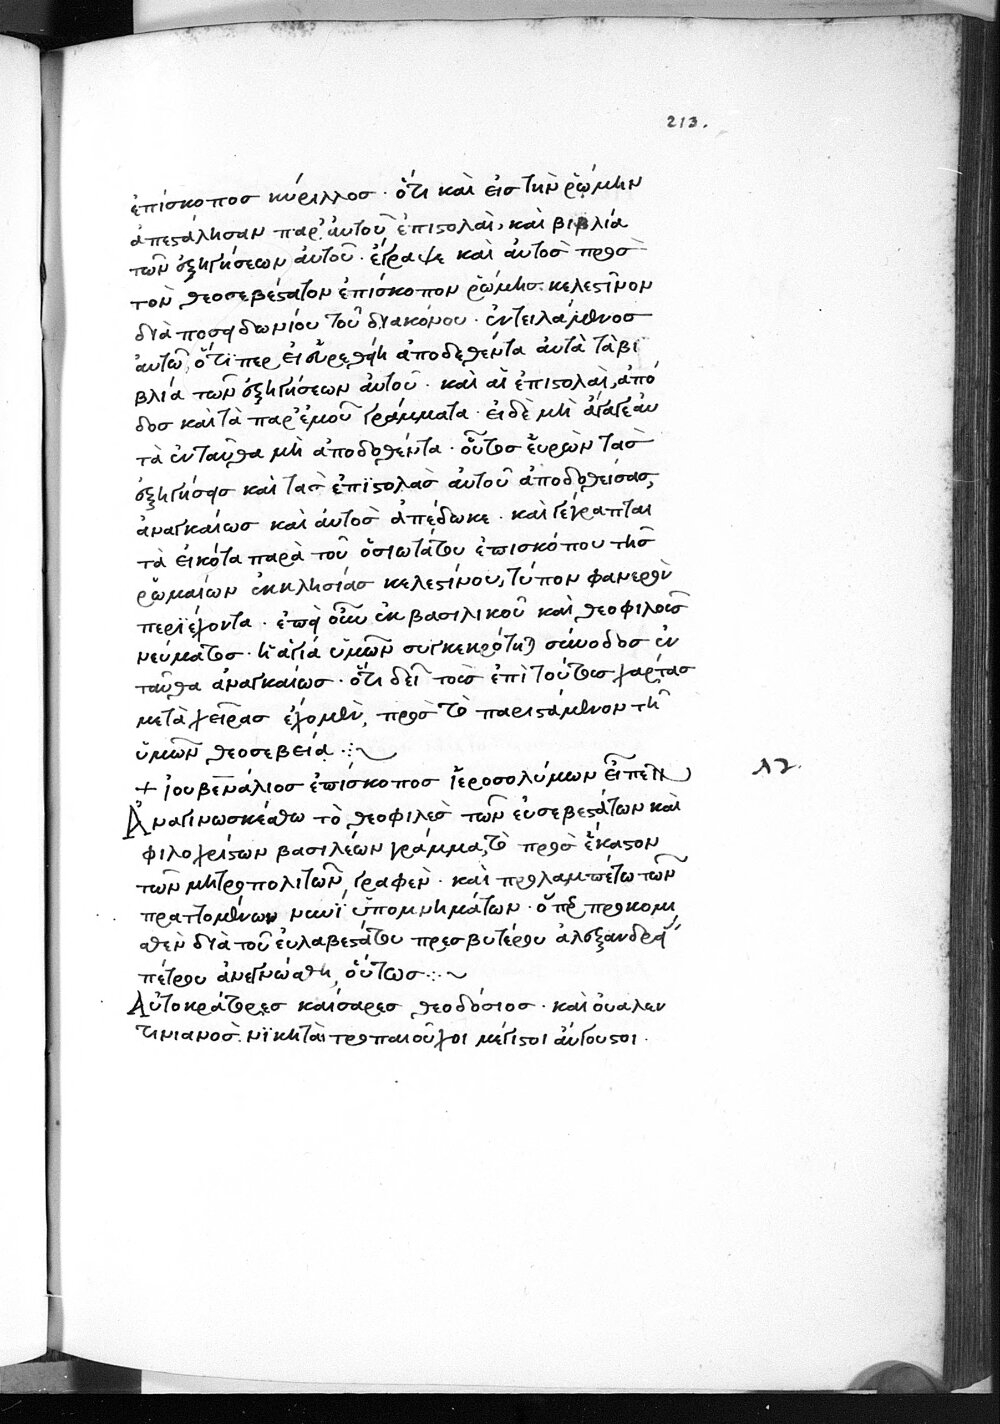 213.
ἐπίσκοπος κύριλλος · ὅτι καὶ εἰς τὴν ῥώμην
ἀπεστάλησαν παρ' αὐτοῦ ἐπιστολαὶ, καὶ βιβλία
τῶν ἐξηγήσεων αὐτοῦ · ἔγραψε καὶ αὐτὸς πρὸς
τὸν θεοσεβέστατον ἐπίσκοπον ῥώμης · κελεστῖνον
διὰ ποσειδωνίου τοῦ διακόνου · ἐντειλάμενος
αὐτῶ, ὅτιπερ εἰ εὑρεθείη ἀποδοθέντα αὐτὰ τὰ βι
βλία τῶν ἐξηγήσεων αὐτοῦ · καὶ αἱ ἐπιστολαὶ, ἀπό
δος καὶ τὰ παρ' ἐμοῦ γράμματα · εἰ δὲ μὴ ἀγάγε αὐ
τὰ ἐνταῦθα μὴ ἀποδοθέντα · οὗτος εὑρὼν τὰς
ἐξηγήσεις καὶ τὰς ἐπιστολὰς αὐτοῦ ἀποδοθείσας,
ἀναγκαίως καὶ αὐτὸς ἀπέδωκε · καὶ γέγραπται
τὰ εἰκότα παρὰ τοῦ ὁσιωτάτου ἐπισκόπου τῆς
ῥωμαίων ἐκκλησίας κελεστίνου, τύπον φανερὸν
περιέχοντα · ἐπεὶ οὖν ἐκ βασιλικοῦ καὶ θεοφιλοῦς
νεύματος · ἡ ἁγία ὑμῶν συγκεκρότηται σύνοδος ἐν
ταῦθα ἀναγκαίως · ὅτι δεῖ τοὺς ἐπὶ τούτοις χάρτας
μετὰ χεῖρας ἔχομεν, πρὸς τὸ παριστάμενον τῆ
ὑμῶν θεοσεβεία
+ ἰουβενάλιος ἐπίσκοπος ἱεροσολύμων εἶπεν
Ἀναγινωσκέσθω τὸ θεοφιλὲς τῶν εὐσεβεστάτων καὶ
φιλοχρίστων βασιλέων γράμμα, τὸ πρὸς ἕκαστον
τῶν μητροπολιτῶν, γραφὲν · καὶ προλαμπέτω τῶν
πραττομένων νυνὶ ὑπομνημάτων · ὅπερ προκομι
σθὲν διὰ τοῦ εὐλαβεστάτου πρεσβυτέρου ἀλεξανδρεί
πέτρου ἀνεγνώσθη, οὕτως
Αὐτοκράτορες καίσαρες θεοδόσιος · καὶ οὐαλεν
τινιανὸς · νικηταὶ τροπαιοῦχοι μέγιστοι αὔγουστοι ·